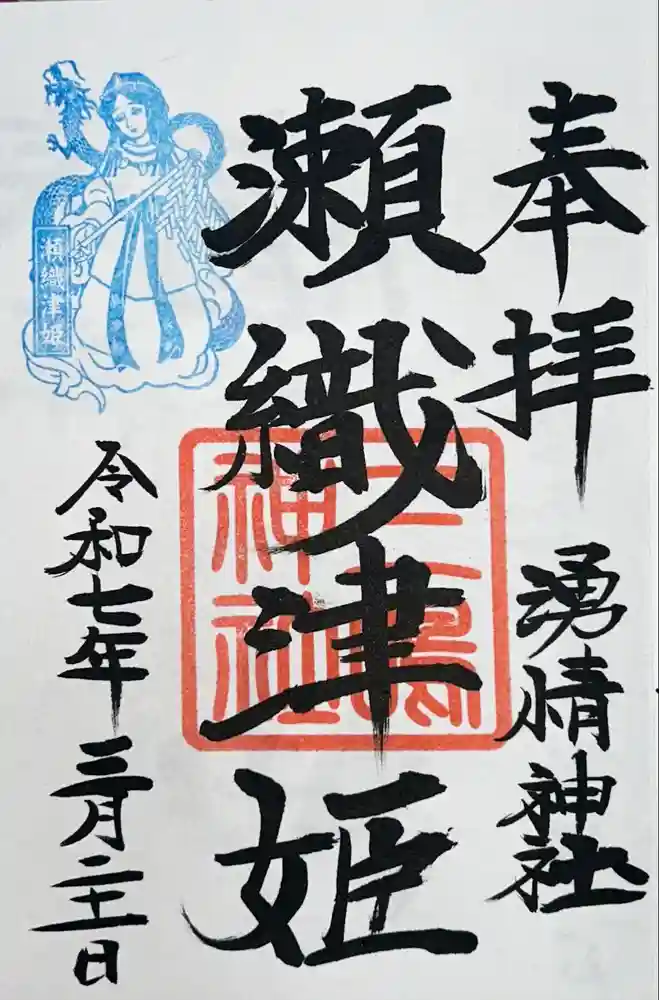 奉拝
湧情神社
瀬織津姫
三嶋神社
瀬織津姫
令和七年三月二十一日